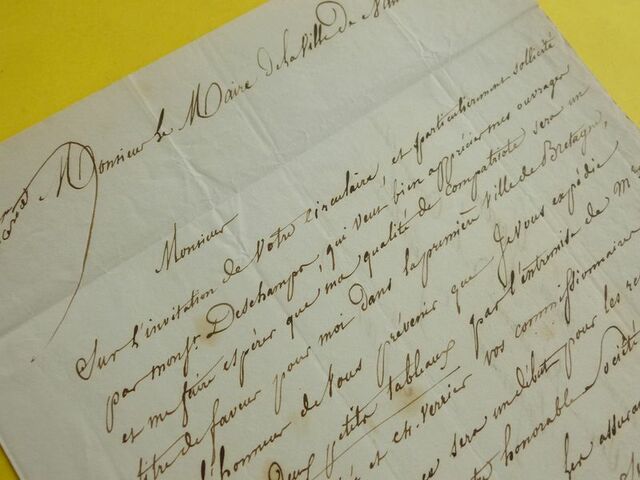 Monsieur Le Maire de la Ville de
Monsieur
Sur l'invitation de Votre Circulaire, et particulierement sollicité
par monsr. Deschamps, qui veut bien apprécier mes ouvrages
et me faire espérer que ma qualité de compatriote sera un
titre de faveur pour moi dans la première Ville de Bretagne,
l'honneur de Vous prévenir que Je Vous expédie
Deux petits tableaux par l'entremise de
et Ch. Verrier vos commissionnaires
sera un début pour les
honorable Société